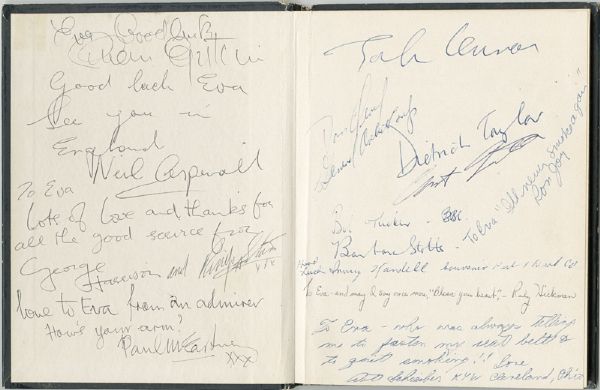 Eva Good luck
Good luck Eva
See you in
England
Neil Aspinall
To Eva
lots of love and thanks for
all the good service from
George
Harrison and Ringo Starr
xxx
love to Eva from an admirer
How's your arm?
Paul McCartney
xxx
John Lennon
Dietrich Taylor
Art
Tucker - BBC
Barbara
To Eva "I'll never smoke again"
Ron Joy
Good
luck
To Eva - and may I say once more, "Bless your heart," - Hickman
To Eva - who was always telling
me to fasten my seat belt &
to quit smoking!!! Love
Art Schreiber KYW Cleveland, Ohio